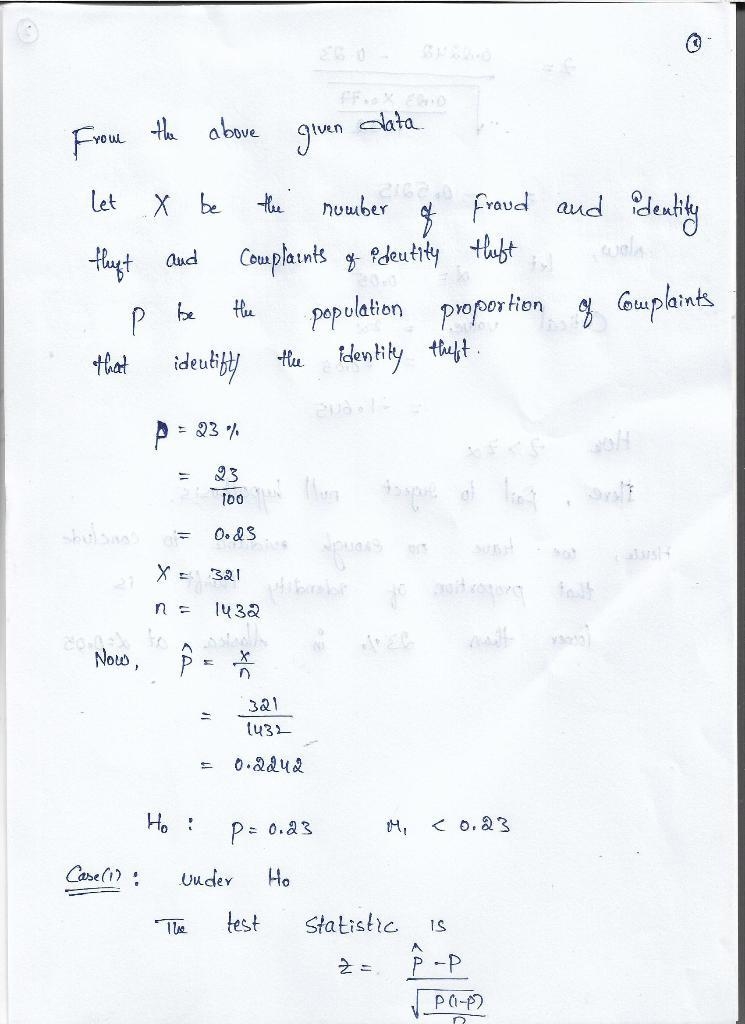 ①
From the above given data.
Let X be the number of fraud and identity
theft and Complaints of identity theft
p be the population proportion of Complaints
that identify the identity theft.
p = 23 %
= 23/100
= 0.23
X = 321
n = 1432
Now, p̂ = x/n
= 321/1432
= 0.2242
H₀ : p = 0.23 H₁ < 0.23
Case(i) : Under H₀
The test Statistic is
z = p̂ - P / √P(1-P)/n